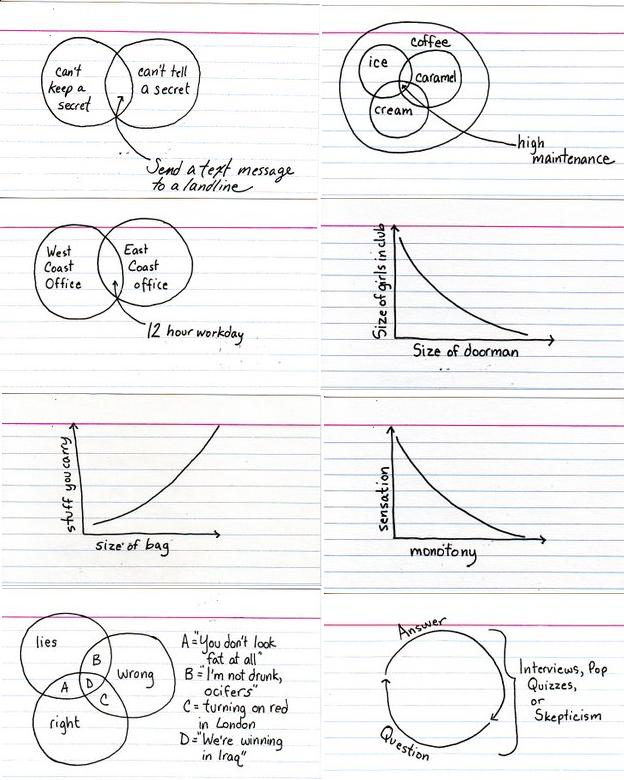 can't
keep a
secret
can't tell
a secret
Send a text message
to a landline
coffee
ice
caramel
cream
high
maintenance
West
Coast
Office
East
Coast
office
12 hour workday
Size of girls in club
Size of doorman
stuff you carry
size of bag
sensation
monotony
lies
B
wrong
A
D
C
right
A="You don't look
fat at all"
B="I'm not drunk,
ocifers"
C= turning on red
in London
D="We're winning
in Iraq"
Answer
Question
Interviews, Pop
Quizzes,
or
Skepticism